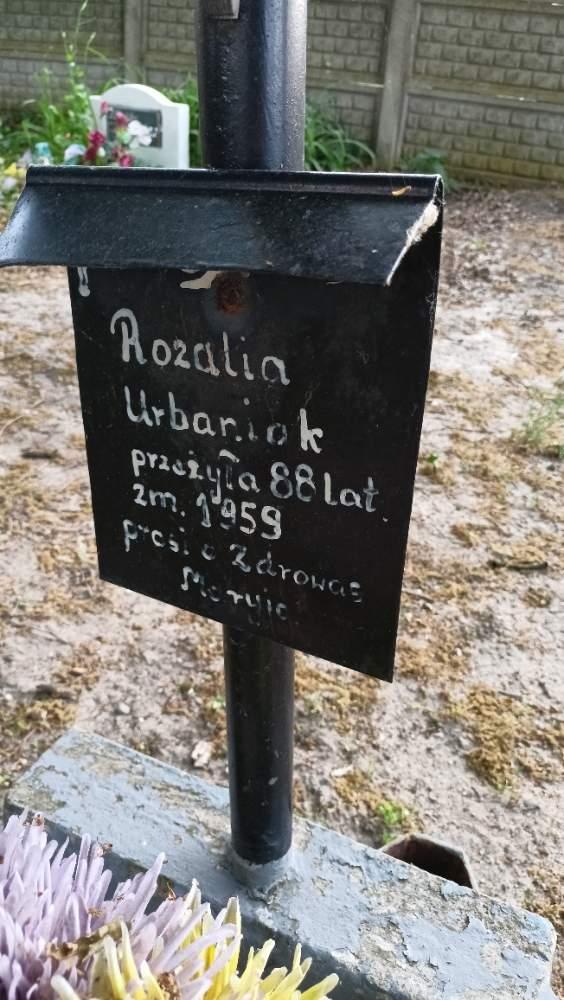 Rozalia
Urbaniak
przeżyła 88 lat
zm. 1959
prosi o Zdrowaś
Maryja